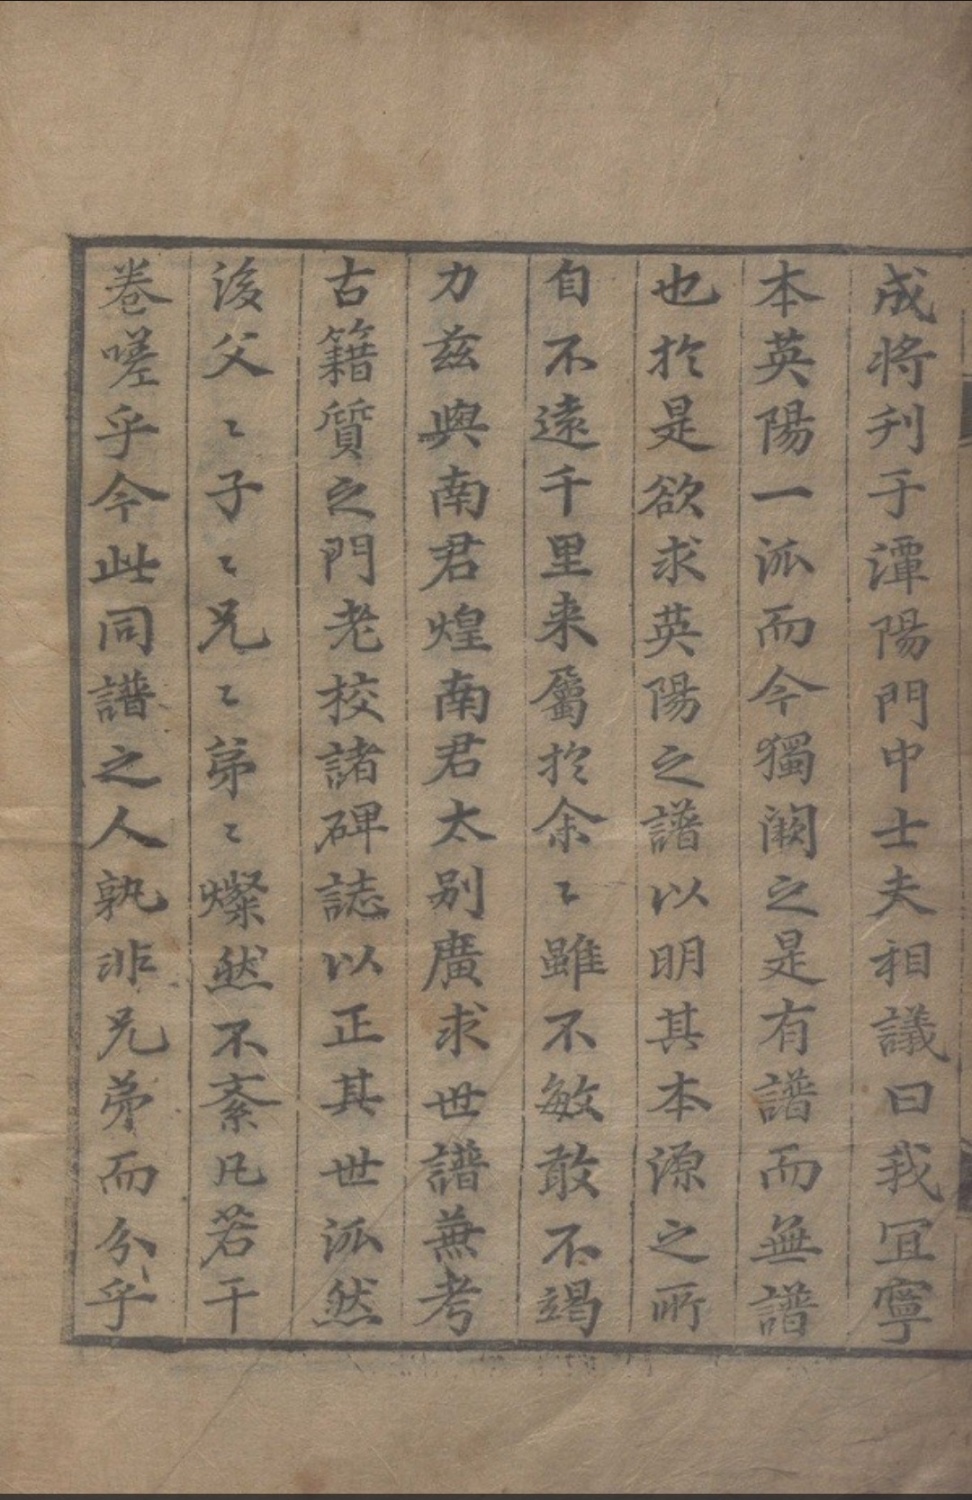 成將刊于潭陽門中士夫相議曰我冝寧
本英陽一派而今獨闕之是有譜而無譜
也扵是欲求英陽之譜以明其本源之所
自不遠千里来屬扵余〻雖不敏敢不竭
力玆與南君煌南君太别廣求世譜兼考
古籍質之門老校諸碑誌以正其世派然
後父〻子〻兄〻弟〻燦然不紊凡若干
卷嗟乎今此同譜之人孰非兄弟而分乎